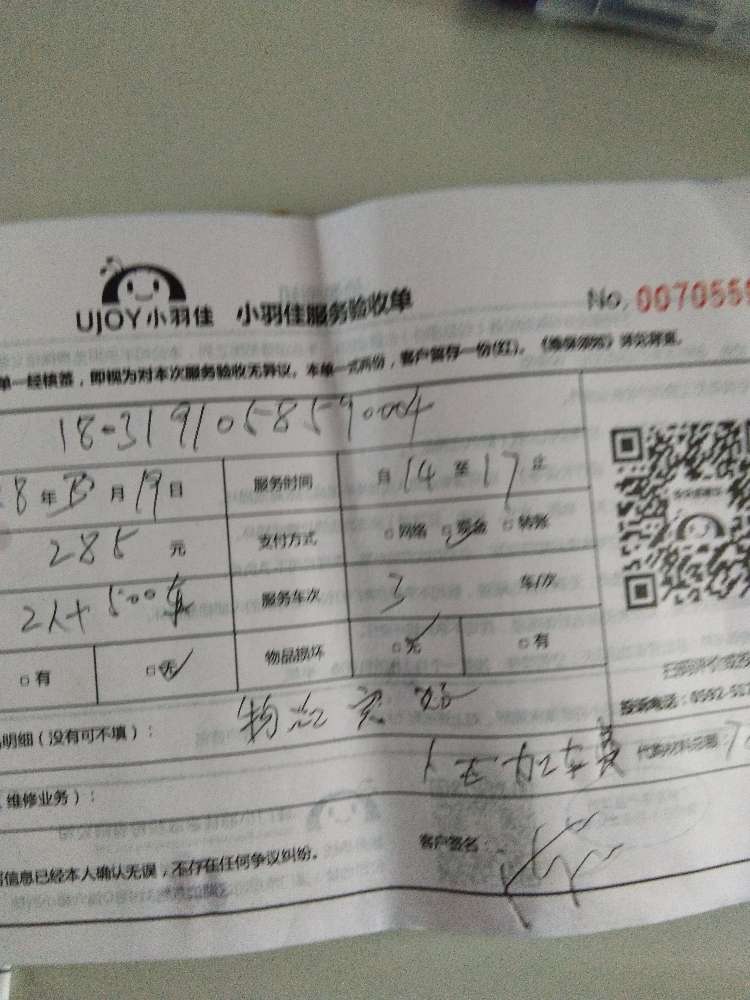 UJOY小羽佳 小羽佳服务验收单
No. 0070559
单一经核签，即视为对本次服务验收无异议。本单一式两份，客户留存一份(红)。《维保须知》详见背面。
18-319105859004
8年 月19日 服务时间 月14至17止
285元 支付方式 □网络 □现金 □转账
2人+500车 服务车次 3 车/次
□有 □无 物品损坏 □无 □有
扫码评价或投
明细（没有可不填）： 物品完好
投诉电话：0592-517
代购材料总额
维修业务）：
信息已经本人确认无误，不存在任何争议纠纷。 客户签名：